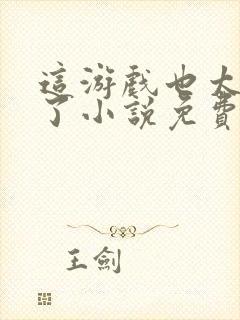 這游戲也太
了小說免費
王劍